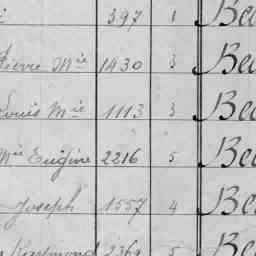 397 1 Be
Pierre Mie 1430 3 Be
Louis Mie 1113 3 Be
Mie Eugène 2216 5 Be
Joseph 1557 4 Be
Raymond 2369 5 Be